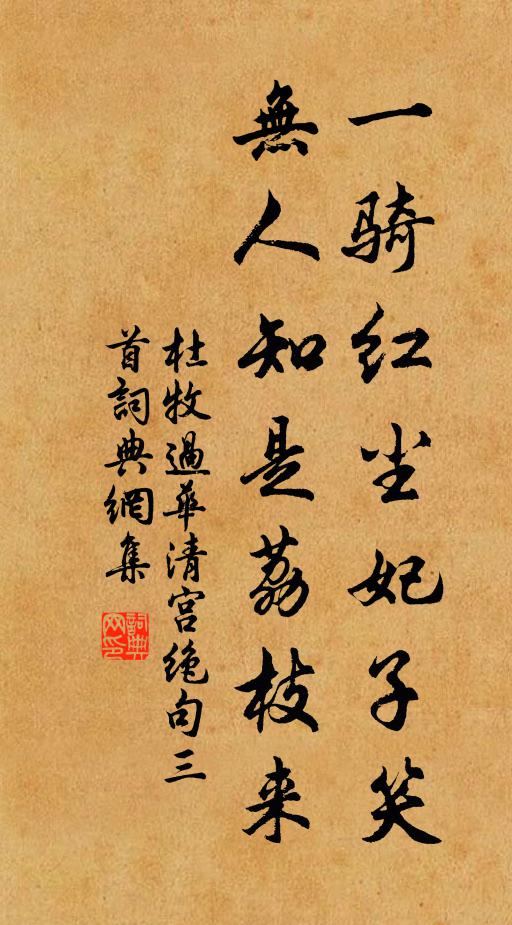 一骑红尘妃子笑
無人知是荔枝来
杜牧過華清宫绝句三
首詞典網集
詞典
网印